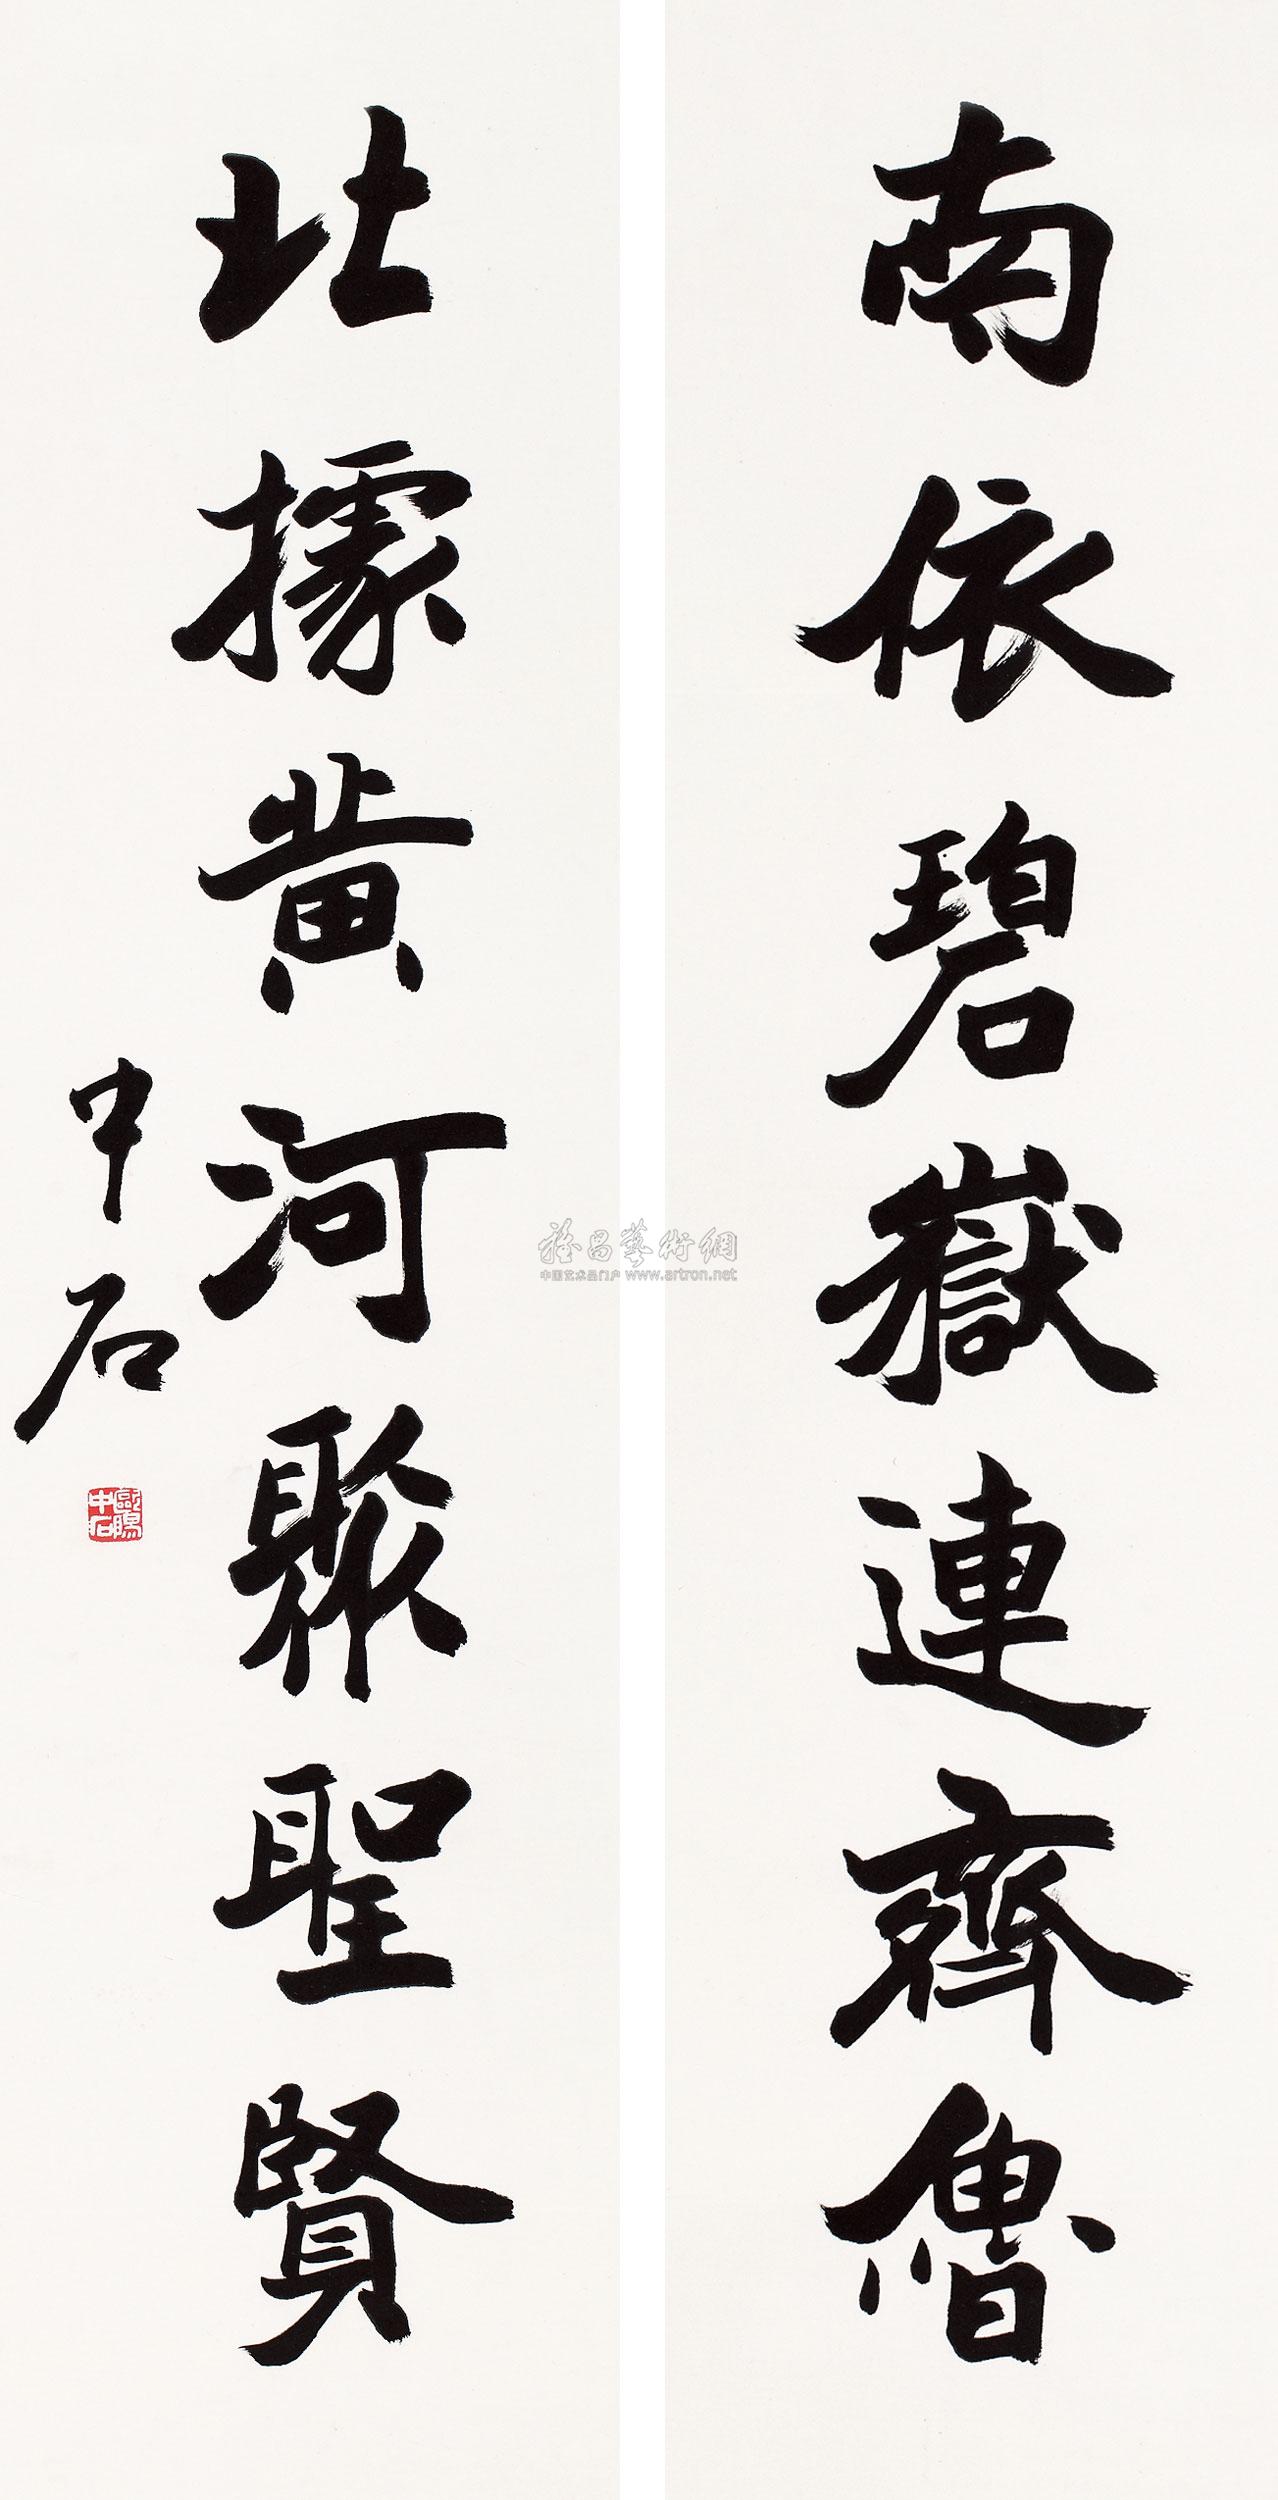 南依碧嶽連齊魯
北據黄河聚聖賢
中石
歐陽中石
雅昌藝術網
中国艺术品门户 www.artron.net